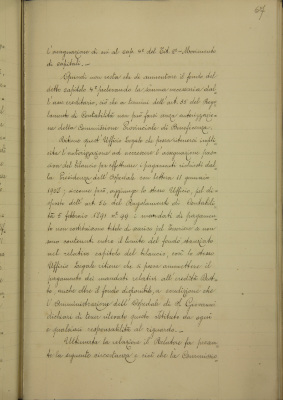 67
l'assegnazione di cui al cap. 4° del Tit. 2° - Movimento
di capitali. -
Quindi non resta che di aumentare il fondo del
detto capitolo 4° prelevando la somma necessaria dal-
l'avanzo, ciò che a termini dell'art. 51 del Rego-
lamento di Contabilità non può farsi senza autorizzazio-
ne della Commissione Provinciale di Beneficenza. -
Intanto quest'Ufficio Legale che possa ritenersi impli-
cita l'autorizzazione ad accrescere l'assegnazione
del bilancio per effettuare i pagamenti richiesti dal-
la Presidenza dell'Ospedale con lettera 11 gennaio
1902; siccome però, aggiunge lo stesso Ufficio, pel di-
sposto dell'art. 54 del Regolamento di Contabili-
tà 5 febbraio 1891 n° 99 i mandati di pagamen-
to non costituiscono titolo di scarico pel Tesoriere se non
sono contenuti entro il limite del fondo stanziato
nel relativo capitolo del bilancio, così lo stesso
Ufficio Legale ritiene che si possa ammettere il
pagamento dei mandati relativi all'anzidetto
oltre il fondo disponibile, a condizione che
l'Amministrazione dell'Ospedale di S. Giovanni
dichiari di tener rilevato questo Istituto da ogni
e qualsiasi responsabilità al riguardo. -
Ultimata la relazione il Relatore fa presen-
te la seguente circostanza e cioè che la Commissio-